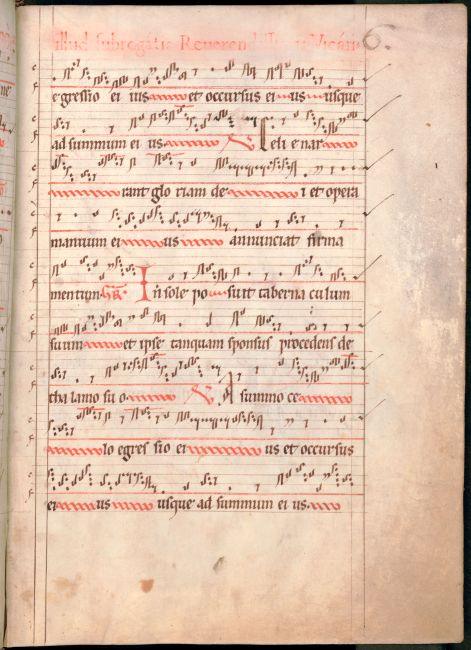 illud subrogatis Reverend Vicarii 6.
egressio ei ius et occursus ei us usque
ad summum ei us Celi e nar
rant glo riam de i et opera
manuum ei us annunciat firma
mentum In sole po suit taberna culum
suum et ipse tanquam sponsus procedens de
tha lamo su o A summo ce
lo egres sio ei us et occursus
ei us usque ad summum ei us